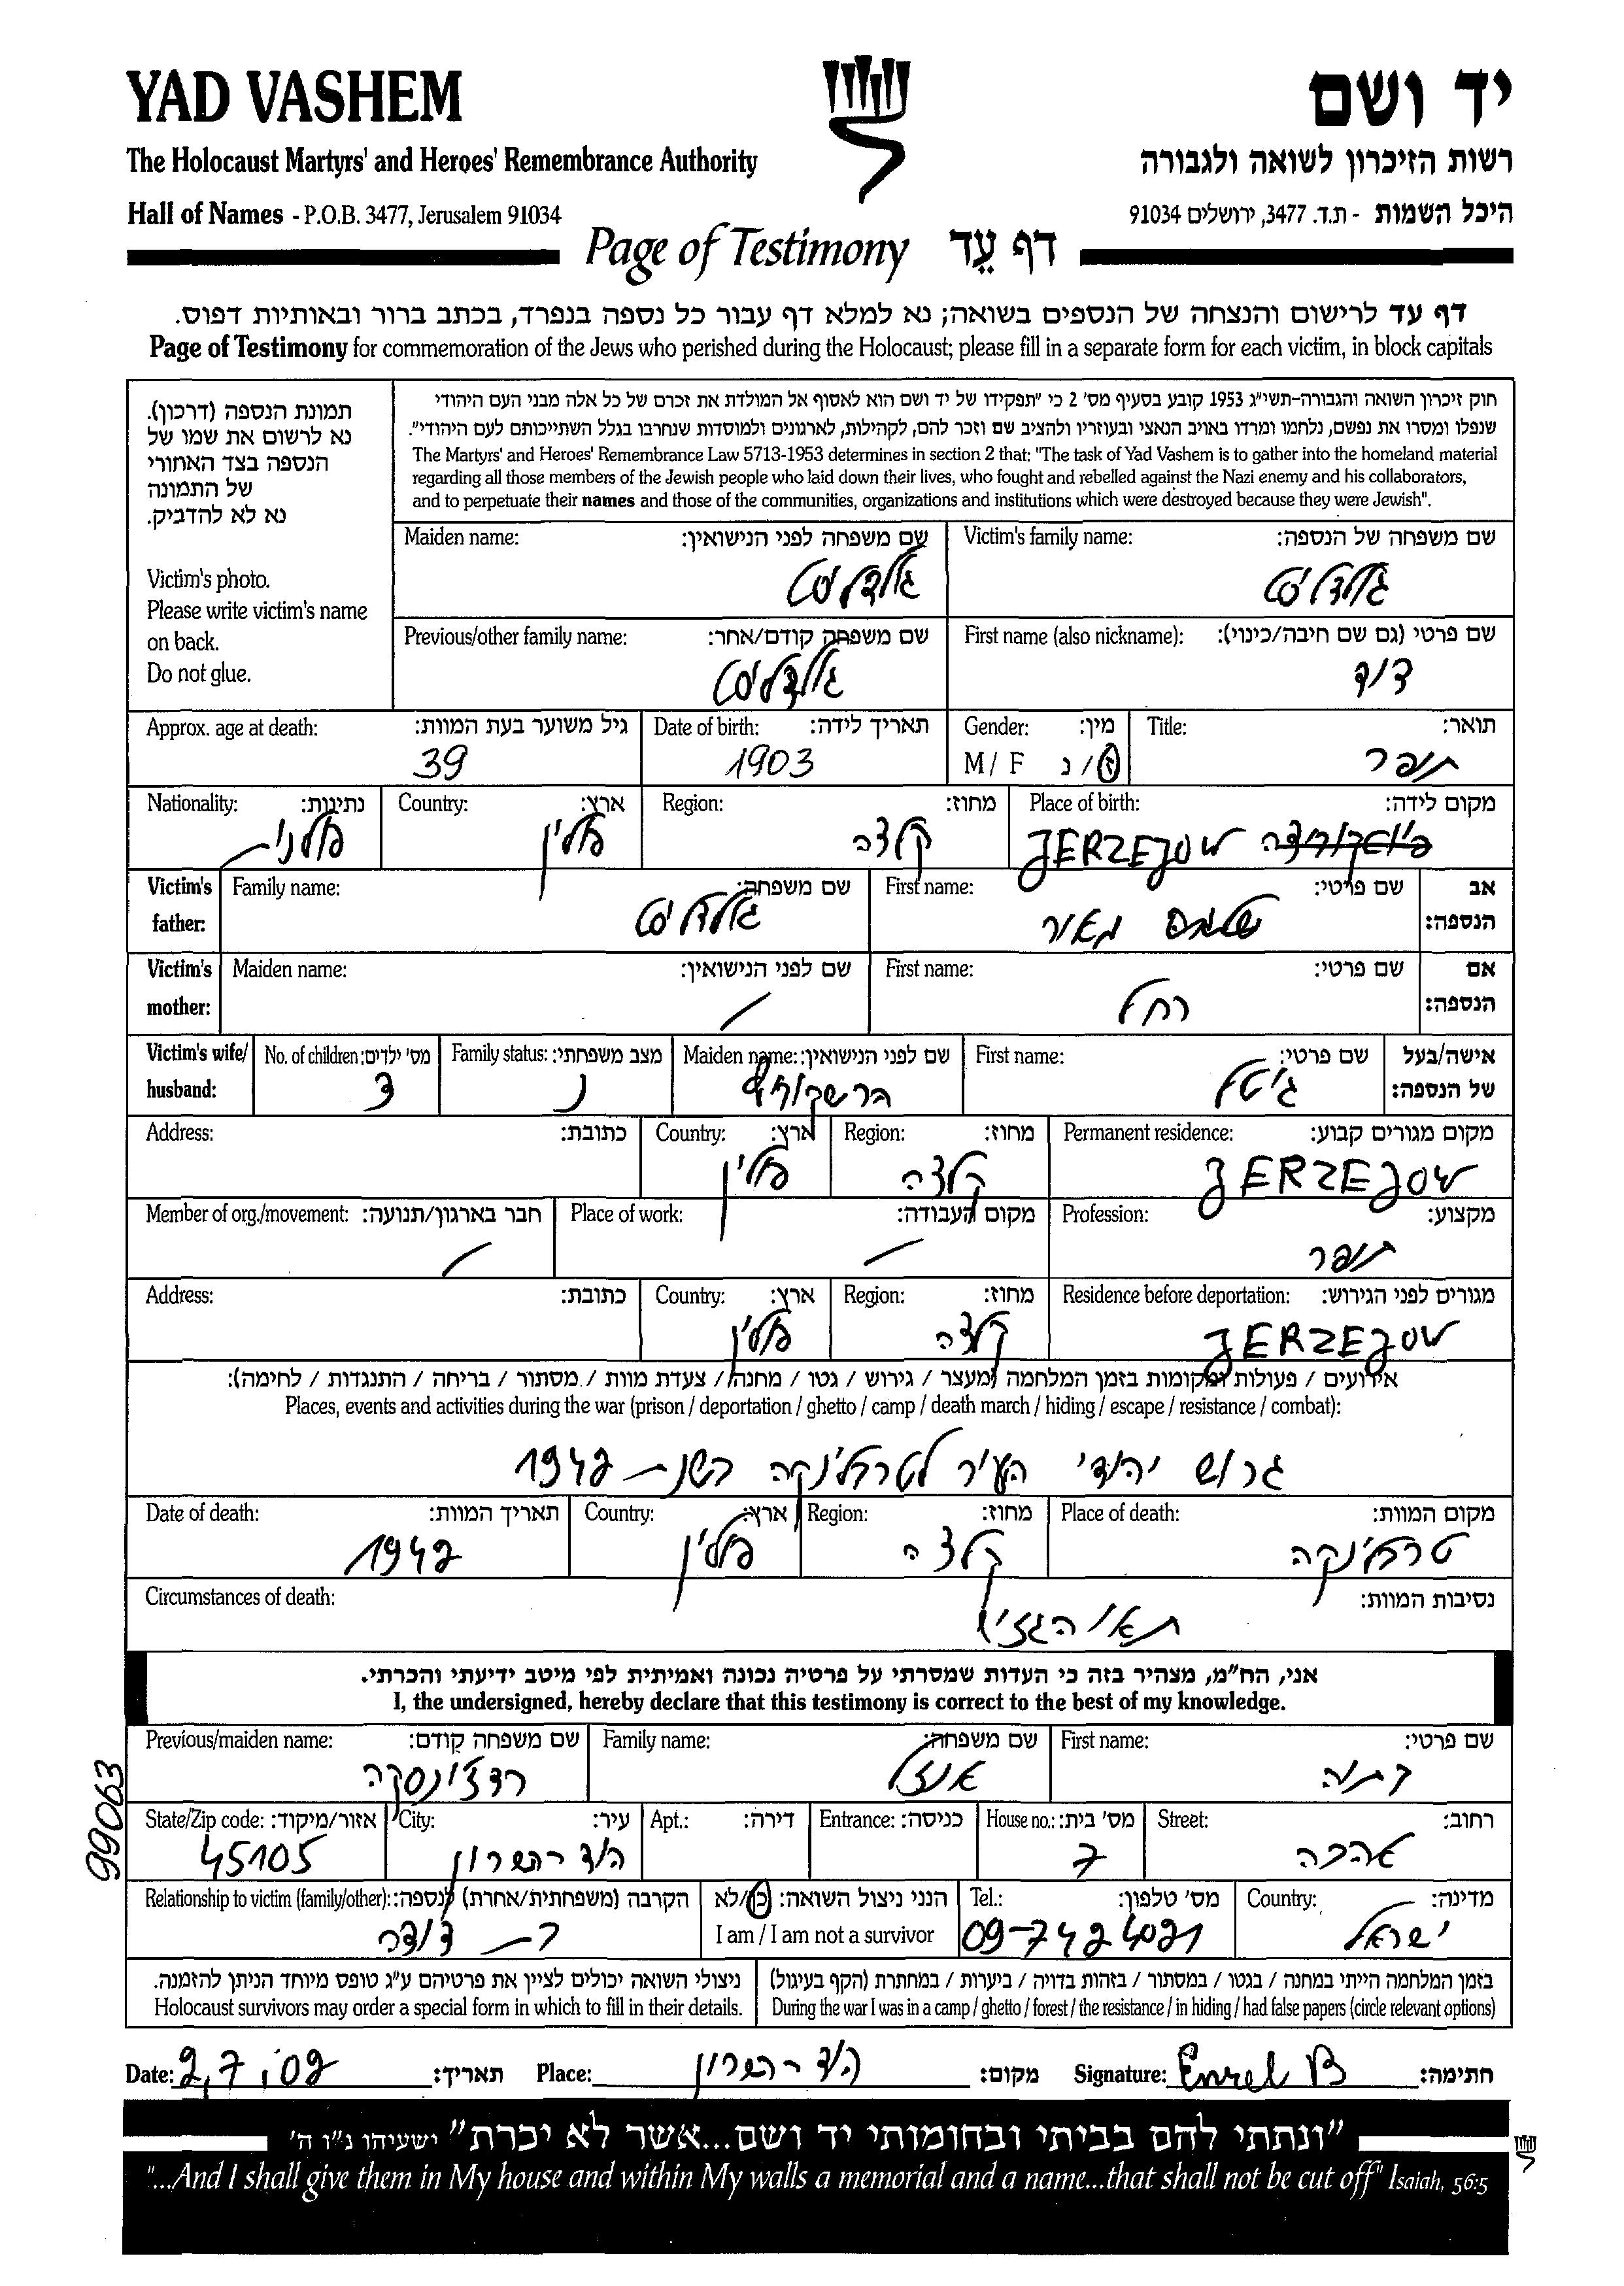 YAD VASHEM
יד ושם
The Holocaust Martyrs' and Heroes' Remembrance Authority
רשות הזיכרון לשואה ולגבורה
Hall of Names - P.O.B. 3477, Jerusalem 91034
היכל השמות - ת.ד. 3477, ירושלים 91034
Page of Testimony דף עֵד
דף עד לרישום והנצחה של הנספים בשואה; נא למלא דף עבור כל נספה בנפרד, בכתב ברור ובאותיות דפוס.
Page of Testimony for commemoration of the Jews who perished during the Holocaust; please fill in a separate form for each victim, in block capitals
תמונת הנספה (דרכון).
נא לרשום את שמו של
הנספה בצד האחורי
של התמונה
נא לא להדביק.
Victim's photo.
Please write victim's name
on back.
Do not glue.
חוק זיכרון השואה והגבורה-תשי"ג 1953 קובע בסעיף מס' 2 כי "תפקידו של יד ושם הוא לאסוף אל המולדת את זכרם של כל אלה מבני העם היהודי
שנפלו ומסרו את נפשם, נלחמו ומרדו באויב הנאצי ובעוזריו ולהציב שם וזכר להם, לקהילות, לארגונים ולמוסדות שנחרבו בגלל השתייכותם לעם היהודי".
The Martyrs' and Heroes' Remembrance Law 5713-1953 determines in section 2 that: "The task of Yad Vashem is to gather into the homeland material
regarding all those members of the Jewish people who laid down their lives, who fought and rebelled against the Nazi enemy and his collaborators,
and to perpetuate their names and those of the communities, organizations and institutions which were destroyed because they were Jewish".
Victim's family name: שם משפחה של הנספה:
Maiden name: שם משפחה לפני הנישואין:
First name (also nickname): שם פרטי (גם שם חיבה/כינוי):
דוד
Previous/other family name: שם משפחה קודם/אחר:
Title: תואר:
תופר
Gender: מין:
M / F ז / נ
Date of birth: תאריך לידה:
1903
Approx. age at death: גיל משוער בעת המוות:
39
Place of birth: מקום לידה:
JERZEJOW
Region: מחוז:
קלצה
Country: ארץ:
פולין
Nationality: נתינות:
פולני
Victim's father: אב הנספה:
First name: שם פרטי:
מאיר
Family name: שם משפחה:
Victim's mother: אם הנספה:
First name: שם פרטי:
רחל
Maiden name: שם לפני הנישואין:
Victim's wife/ husband: אישה/בעל של הנספה:
First name: שם פרטי:
גיטל
Maiden name: שם לפני הנישואין:
הרשקוביץ
Family status: מצב משפחתי:
נ
No. of children: מס' ילדים:
3
Permanent residence: מקום מגורים קבוע:
JERZEJOW
Region: מחוז:
קלצה
Country: ארץ:
פולין
Address: כתובת:
Profession: מקצוע:
תופר
Place of work: מקום העבודה:
Member of org./movement: חבר בארגון/תנועה:
Residence before deportation: מגורים לפני הגירוש:
JERZEJOW
Region: מחוז:
קלצה
Country: ארץ:
פולין
Address: כתובת:
אירועים / פעולות ומקומות בזמן המלחמה (מעצר / גירוש / גטו / מחנה / צעדת מוות / מסתור / בריחה / התנגדות / לחימה):
Places, events and activities during the war (prison / deportation / ghetto / camp / death march / hiding / escape / resistance / combat):
גרוש יהודי העיר לטרבלינקה בשנת 1942
Place of death: מקום המוות:
טרבלינקה
Region: מחוז:
קלצה
Country: ארץ:
פולין
Date of death: תאריך המוות:
1942
Circumstances of death: נסיבות המוות:
תאי הגזים
אני, הח"מ, מצהיר בזה כי העדות שמסרתי על פרטיה נכונה ואמיתית לפי מיטב ידיעתי והכרתי.
I, the undersigned, hereby declare that this testimony is correct to the best of my knowledge.
First name: שם פרטי:
Family name: שם משפחה:
אנזל
Previous/maiden name: שם משפחה קודם:
99063
Street: רחוב:
אהבה
House no.: מס' בית:
7
Entrance: כניסה:
Apt.: דירה:
City: עיר:
הוד-השרון
State/Zip code: אזור/מיקוד:
45105
Country: מדינה:
ישראל
Tel.: מס' טלפון:
09-7424021
הנני ניצול השואה: כן/לא
I am / I am not a survivor
Relationship to victim (family/other): הקרבה (משפחתית/אחרת) לנספה:
בת דודה
בזמן המלחמה הייתי במחנה / בגטו / במסתור / בזהות בדויה / ביערות / במחתרת (הקף בעיגול)
During the war I was in a camp / ghetto / forest / the resistance / in hiding / had false papers (circle relevant options)
ניצולי השואה יכולים לציין את פרטיהם ע"ג טופס מיוחד הניתן להזמנה.
Holocaust survivors may order a special form in which to fill in their details.
Date: 2,7,02 תאריך: Place: הוד-השרון מקום: Signature: חתימה:
"ונתתי להם בביתי ובחומותי יד ושם...אשר לא יכרת" ישעיהו נ"ו ה'
"...And I shall give them in My house and within My walls a memorial and a name...that shall not be cut off" Isaiah, 56:5